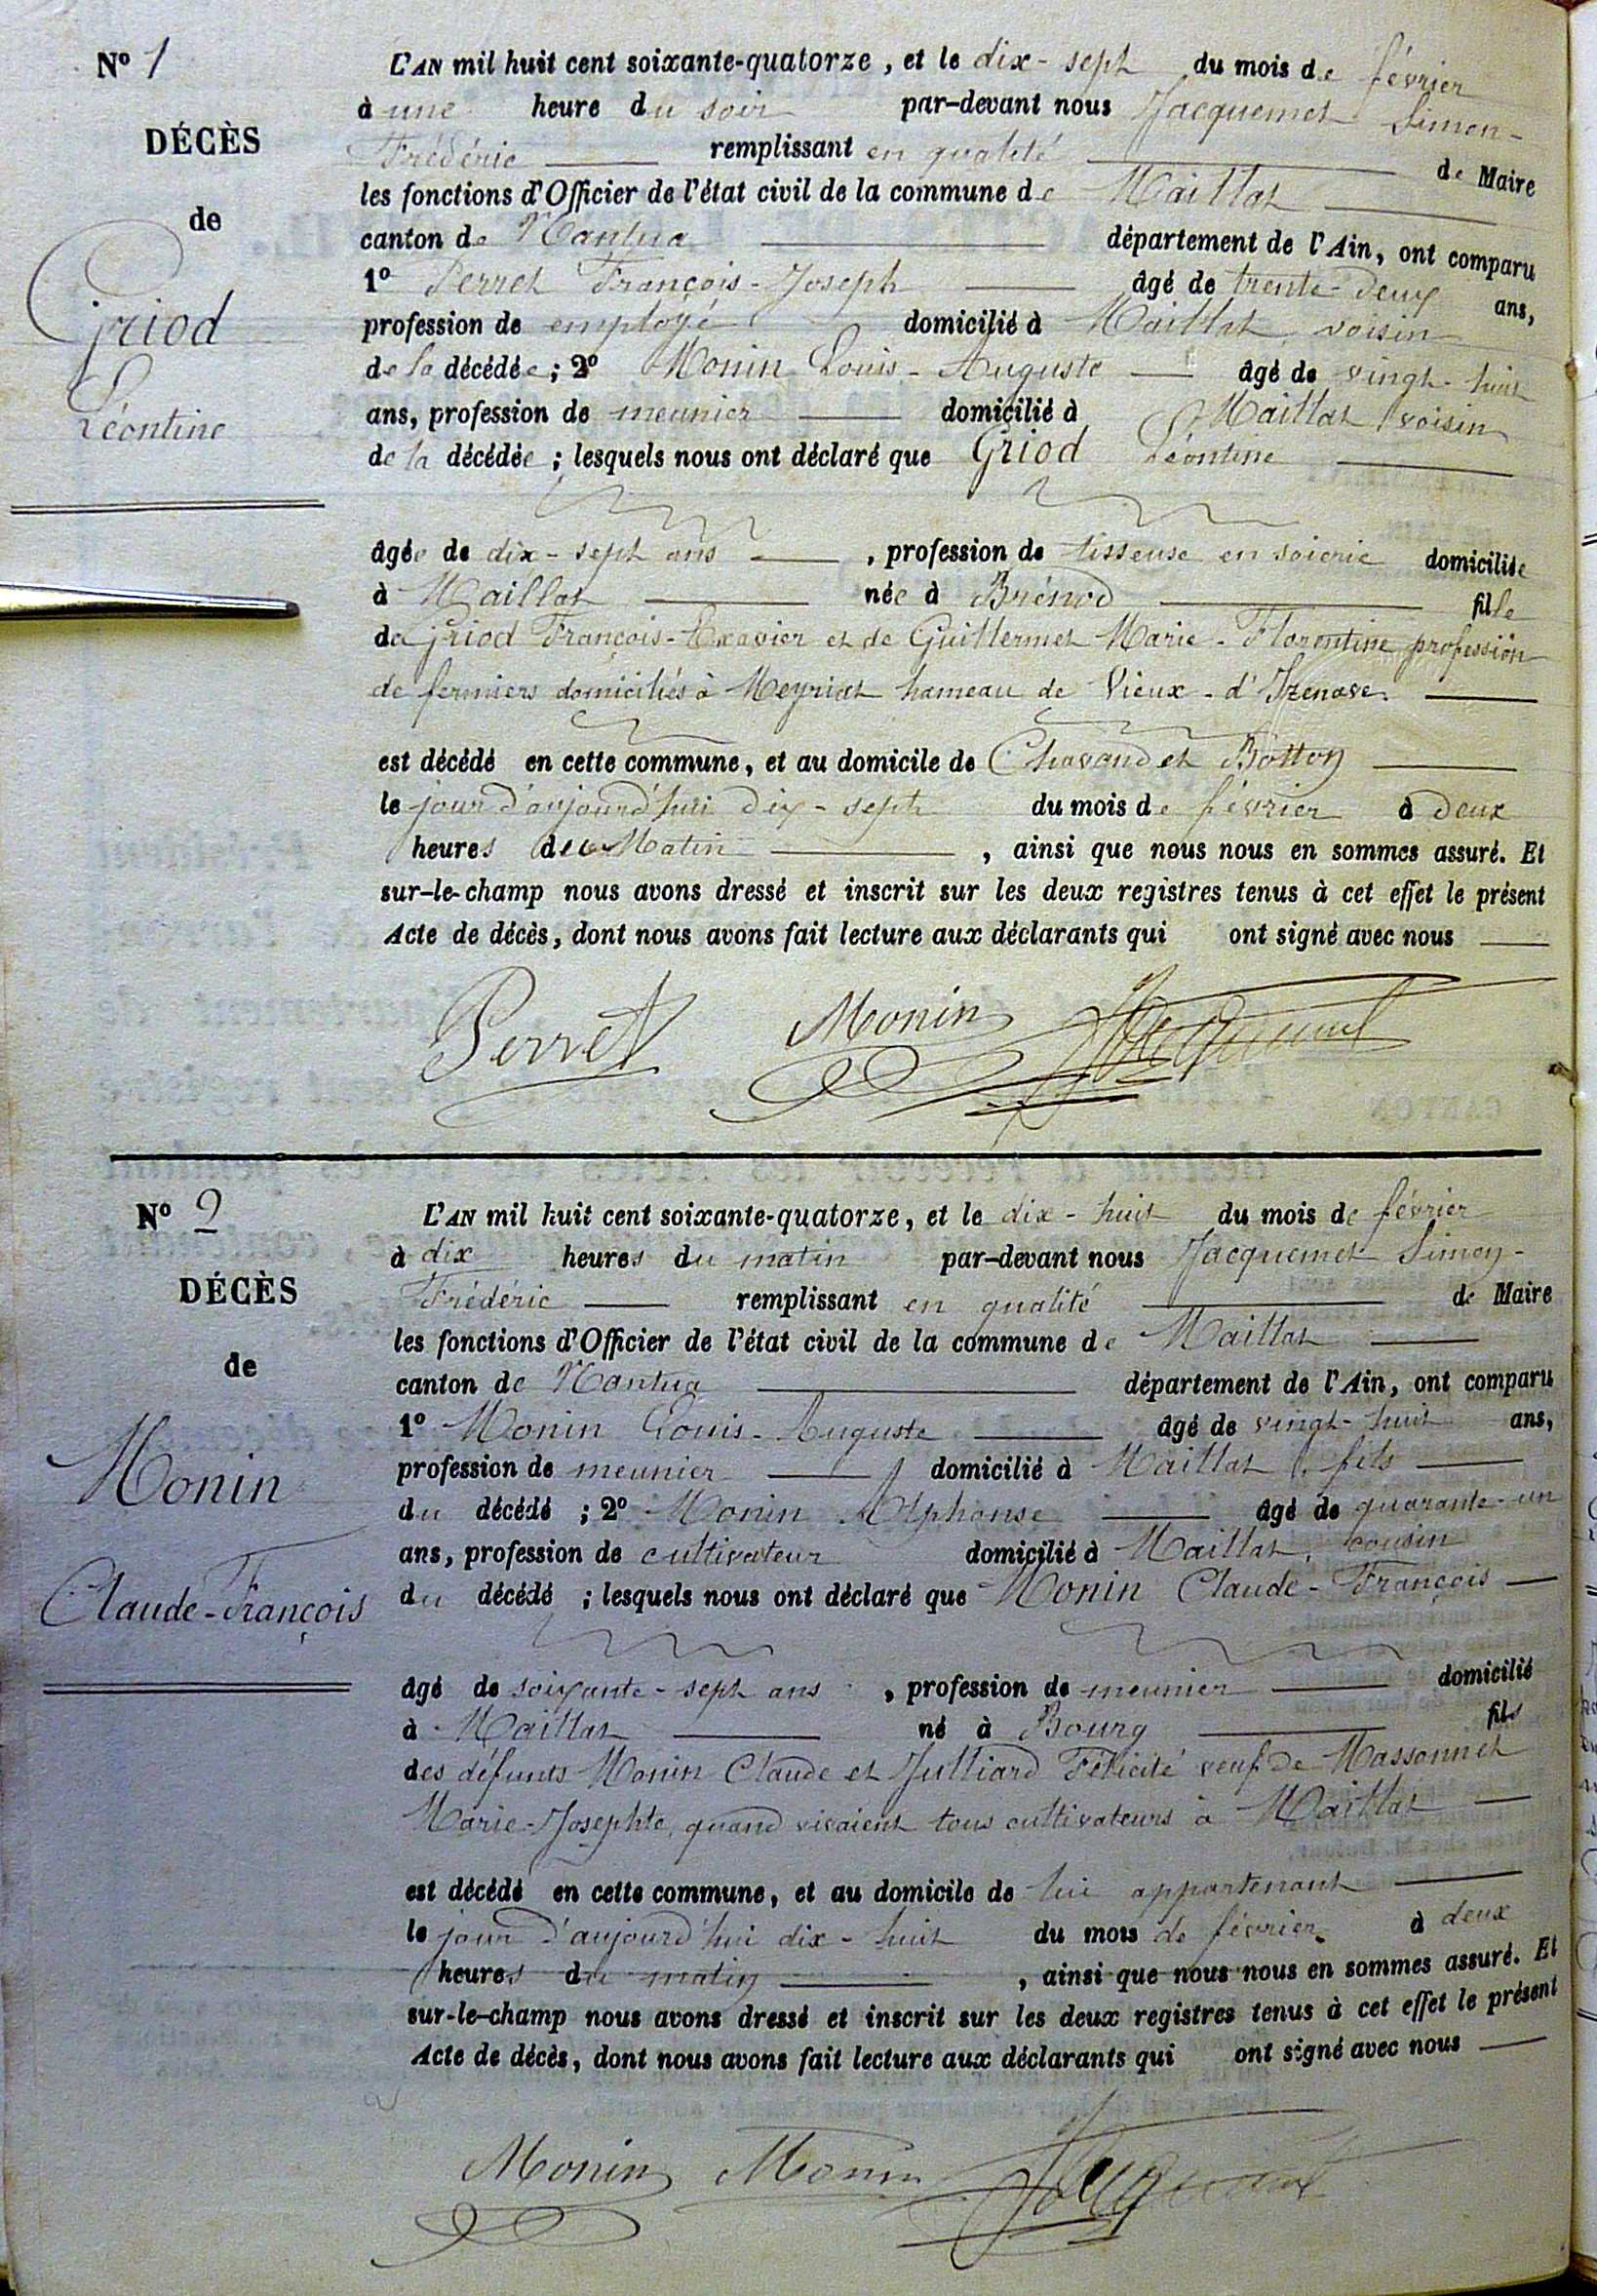 Nº 1
DÉCÈS
de
Griod
Léontine
L'AN mil huit cent soixante-quatorze, et le dix-sept du mois de février
à une heure du soir par-devant nous Jacquemet Simon-
Frédéric remplissant en qualité de Maire
les fonctions d'Officier de l'état civil de la commune de Maillat
canton de Nantua département de l'Ain, ont comparu
1º Perret François-Joseph âgé de trente-deux ans,
profession de employé domicilié à Maillat, voisin
de la décédée ; 2º Monin Louis-Auguste âgé de vingt-huit
ans, profession de meunier domicilié à Maillat, voisin
de la décédée ; lesquels nous ont déclaré que Griod Léontine
âgée de dix-sept ans , profession de tisseuse en soierie domiciliée
à Maillat née à Brénod fille
de Griod François-Exavier et de Guillermet Marie-Florentine profession
de fermiers domiciliés à Meyriat hameau de Vieux-d'Izenave.
est décédé en cette commune, et au domicile de Chavand et Botton
le jour d'aujourd'hui dix-sept du mois de février à deux
heures du Matin , ainsi que nous nous en sommes assuré. Et
sur-le-champ nous avons dressé et inscrit sur les deux registres tenus à cet effet le présent
Acte de décès, dont nous avons fait lecture aux déclarants qui ont signé avec nous
Perret Monin Jacquemet
Nº 2
DÉCÈS
de
Monin
Claude-François
L'AN mil huit cent soixante-quatorze, et le dix-huit du mois de février
à dix heures du matin par-devant nous Jacquemet Simon-
Frédéric remplissant en qualité de Maire
les fonctions d'Officier de l'état civil de la commune de Maillat
canton de Nantua département de l'Ain, ont comparu
1º Monin Louis-Auguste âgé de vingt-huit ans,
profession de meunier domicilié à Maillat, fils
du décédé ; 2º Monin Alphonse âgé de quarante-un
ans, profession de cultivateur domicilié à Maillat, cousin
du décédé ; lesquels nous ont déclaré que Monin Claude-François
âgé de soixante-sept ans , profession de meunier domicilié
à Maillat né à Bourg fils
des défunts Monin Claude et Julliard Félicité veuf de Massonnet
Marie-Josephte, quand vivaient tous cultivateurs à Maillat
est décédé en cette commune, et au domicile de lui appartenant
le jour d'aujourd'hui dix-huit du mois de février à deux
heures du matin , ainsi que nous nous en sommes assuré. Et
sur-le-champ nous avons dressé et inscrit sur les deux registres tenus à cet effet le présent
Acte de décès, dont nous avons fait lecture aux déclarants qui ont signé avec nous
Monin Monin Jacquemet